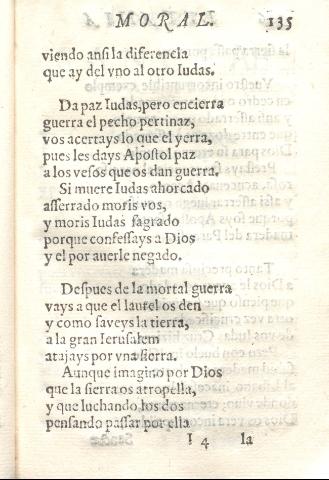 MORAL. 135
viendo ansi la diferencia
que ay del vno al otro Iudas.
Da paz Iudas, pero encierra
guerra el pecho pertinaz,
vos acertays lo que el yerra,
pues les days Apostol paz
a los vesos que os dan guerra.
Si muere Iudas ahorcado
asserrado moris vos,
y moris Iudas sagrado
porque confessays a Dios
y el por auerle negado.
Despues de la mortal guerra
vays a que el laurel os den
y como saveys la tierra,
a la gran Ierusalem
atajays por vna sierra.
Aunque imagino por Dios
que la sierra os atropella,
y que luchando los dos
pensando passar por ella
I 4 la